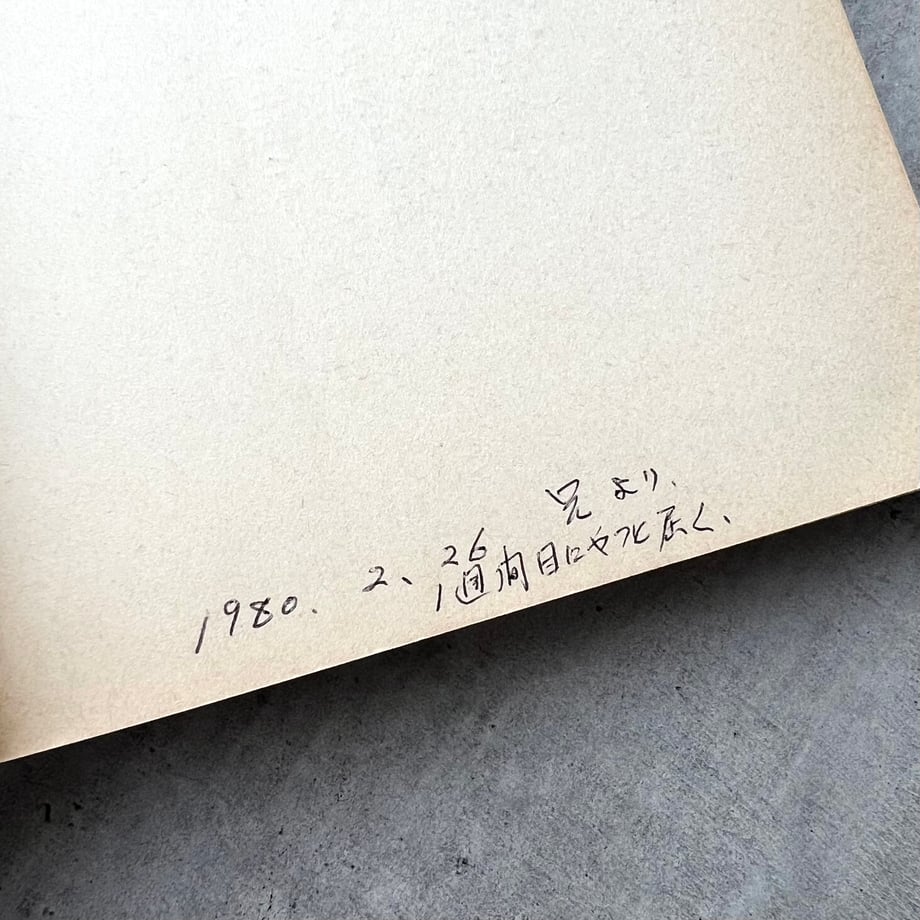 1980. 2、26 兄より、
1週間目にやつと届く、